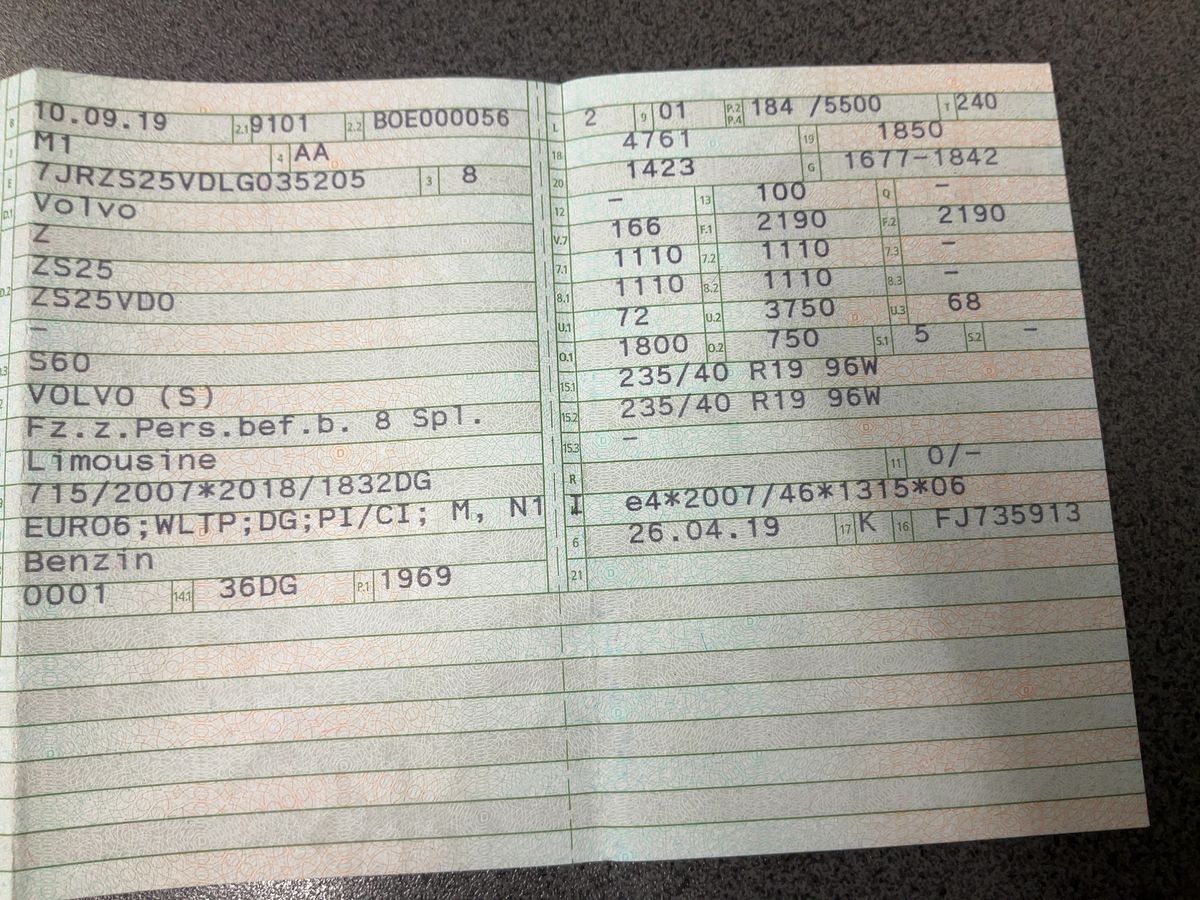 B 10.09.19 2.1 9101 2.2 BOE000056
J M1 4 AA
E 7JRZS25VDLG035205 3 8
D.1 Volvo
Z
D.2 ZS25
ZS25VD0
–
D.3 S60
2 VOLVO (S)
Fz.z.Pers.bef.b. 8 Spl.
Limousine
715/2007*2018/1832DG
EURO6;WLTP;DG;PI/CI; M, N1 I
Benzin
0001 14.1 36DG P.1 1969
L 2 9 01 P.2 P.4 184 /5500 T 240
18 4761 19 1850
20 1423 G 1677-1842
12 – 13 100 Q –
V.7 166 F.1 2190 F.2 2190
7.1 1110 7.2 1110 7.3 –
8.1 1110 8.2 1110 8.3 –
U.1 72 U.2 3750 U.3 68
O.1 1800 O.2 750 S.1 5 S.2 –
15.1 235/40 R19 96W
15.2 235/40 R19 96W
15.3 –
R 11 0/–
e4*2007/46*1315*06
6 26.04.19 17 K 16 FJ735913
21